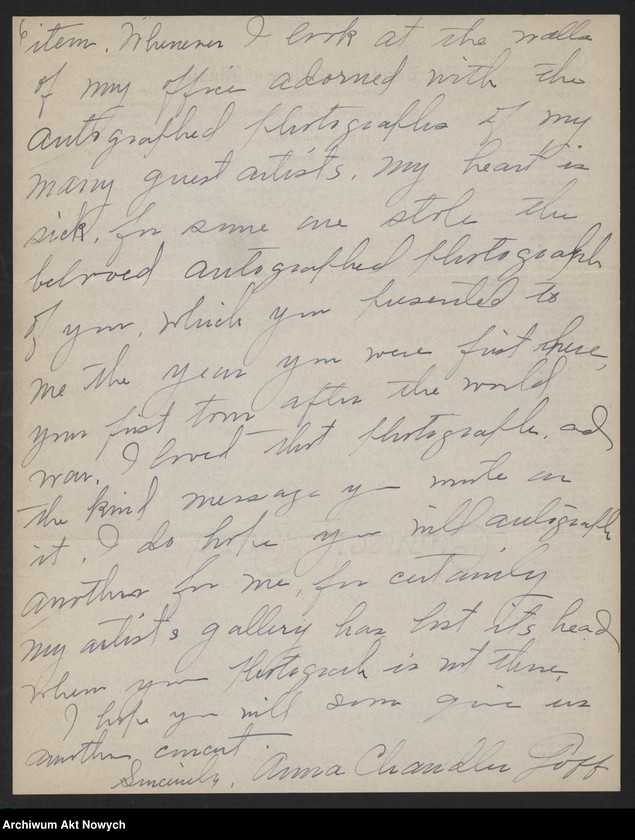 6
item. Whenever I look at the walls
of my office adorned with the
autographed photographs of my
many guest artists, my heart is
sick, for some one stole the
beloved autographed photograph
of you, which you presented to
me the year you were first here,
your first tour after the world
war. I loved that photograph, and
the kind message you wrote on
it. I do hope you will autograph
another for me, for certainly
my artist's gallery has lost its head
when your photograph is not there.
I hope you will soon give us
another concert.
Sincerely, Anna Chandler Goff
Archiwum Akt Nowych